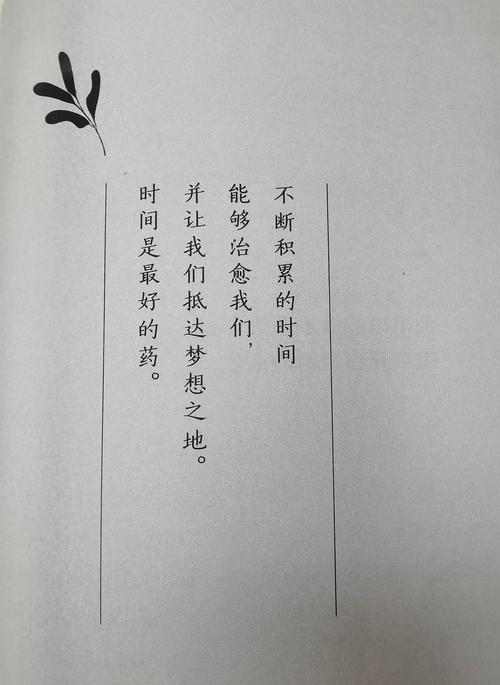 不断积累的时间
能够治愈我们，
并让我们抵达梦想之地。
时间是最好的药。